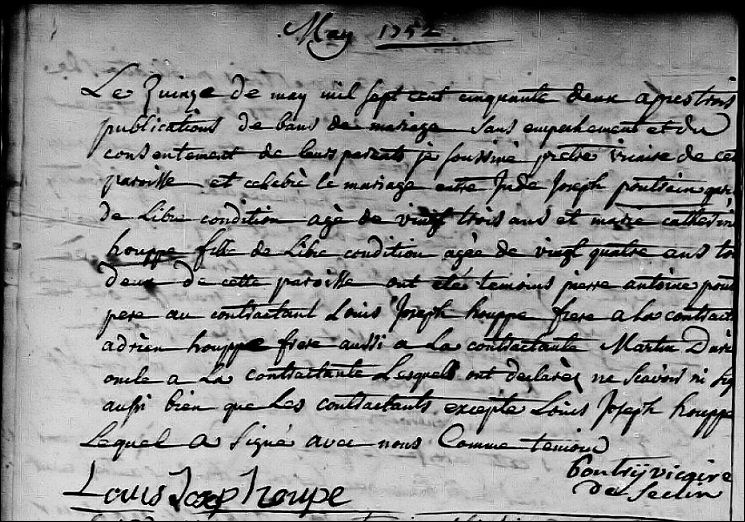 May 1752
Le Quinze de may mil sept cent cinquante deux apres trois
publications de bans de mariage sans empechement et du
consentement de leurs parents je soussiné pretre vicaire de cet
paroisse et celebré le mariage entre Jude Joseph pontsain garç
de Libre condition agé de vingt trois ans et marie catherine
houppe fille de Libre condition agée de vingt quatre ans to
deux de cette paroisse ont etés temoins pierre antoine pont
pere au contractant Louis Joseph houppe frere a la contracta
adrien houppe frere aussi a La contractante Martin
oncle a La contractante Lesquels ont declarés ne scavoir ni sig
aussi bien que Les contractants excepté Louis Joseph houppe
Lequel a signé avec nous Comme temoins
vicaire
de Seclin
Louis Josep houpe